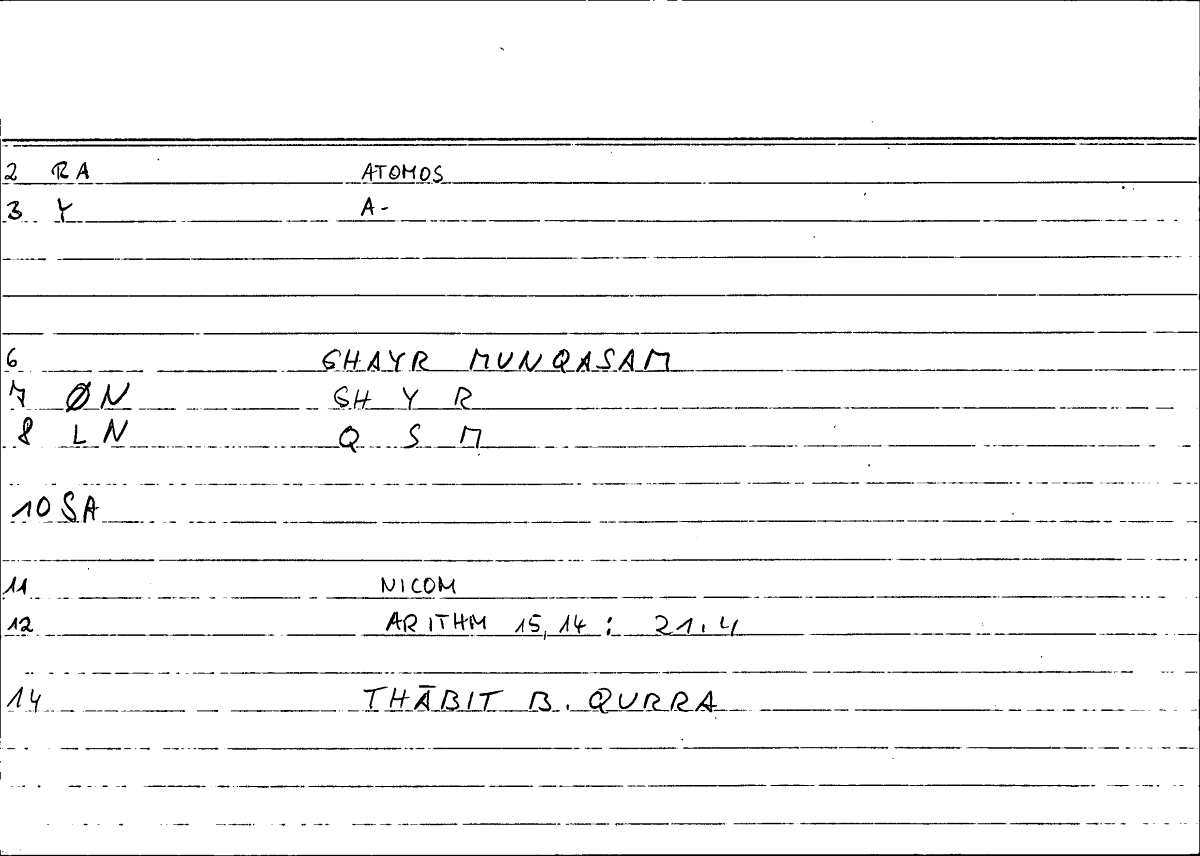 2 RA ATOMOS
3 Y A-
6 GHAYR MUNQASAM
7 ØN GH Y R
8 LN Q S M
10 SA
11 NICOM
12 ARITHM 15,14 : 21.4
14 THĀBIT B. QURRA